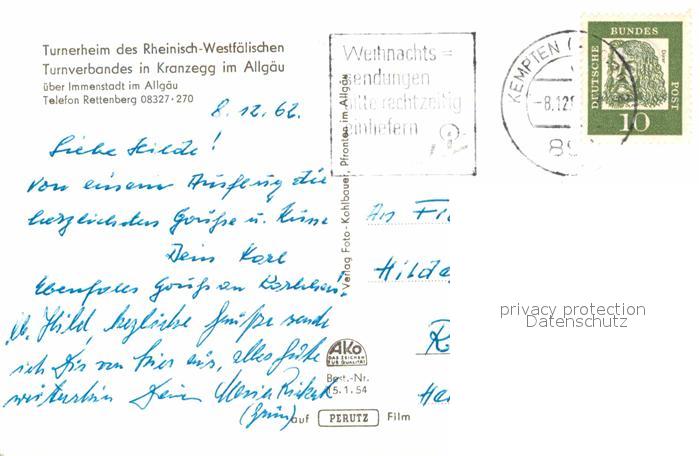 Turnerheim des Rheinisch-Westfälischen
Turnverbandes in Kranzegg im Allgäu
über Immenstadt im Allgäu
Telefon Rettenberg 08327·270
8.12.62.
Liebe Hilde!
von einem Ausflug die
herzlichsten Grüße u. Küsse
Dein Karl
Ebenfalls Grüße an
Hild, herzliche Grüße sende
ich Dir von hier aus, alles Gute
weiterhin Deine Maria
Verlag Foto-Kohlbauer, Pfronten im Allgäu
AKO
DAS ZEICHEN
FÜR QUALITÄT
Best.-Nr.
15.1.54
auf PERUTZ Film
Weihnachts=
sendungen
bitte rechtzeitig
einliefern
KEMPTEN
-8.12
89
DEUTSCHE
BUNDES
POST
Dürer
10
An
Hilde
privacy protection
Datenschutz